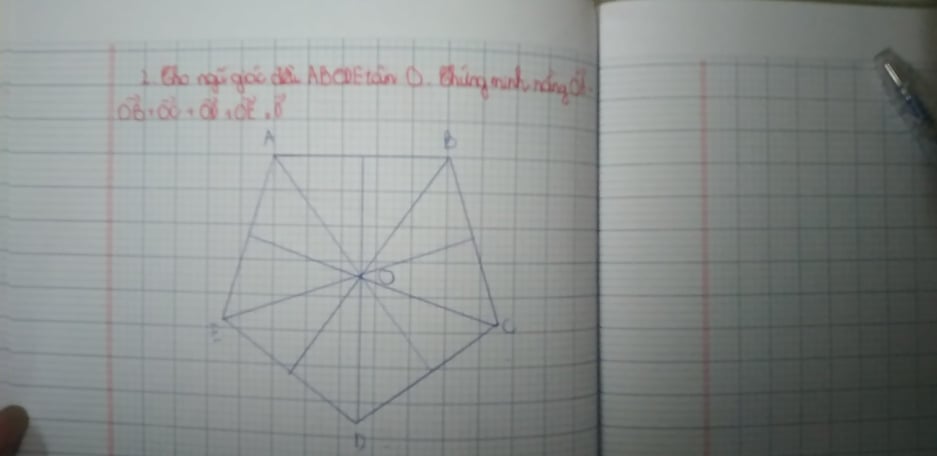 2. Cho ngũ giác đều ABCDE tâm O. Chứng minh rằng OA⃗ +
OB⃗ + OC⃗ + OD⃗ + OE⃗ = 0⃗
A B
O
E C
D